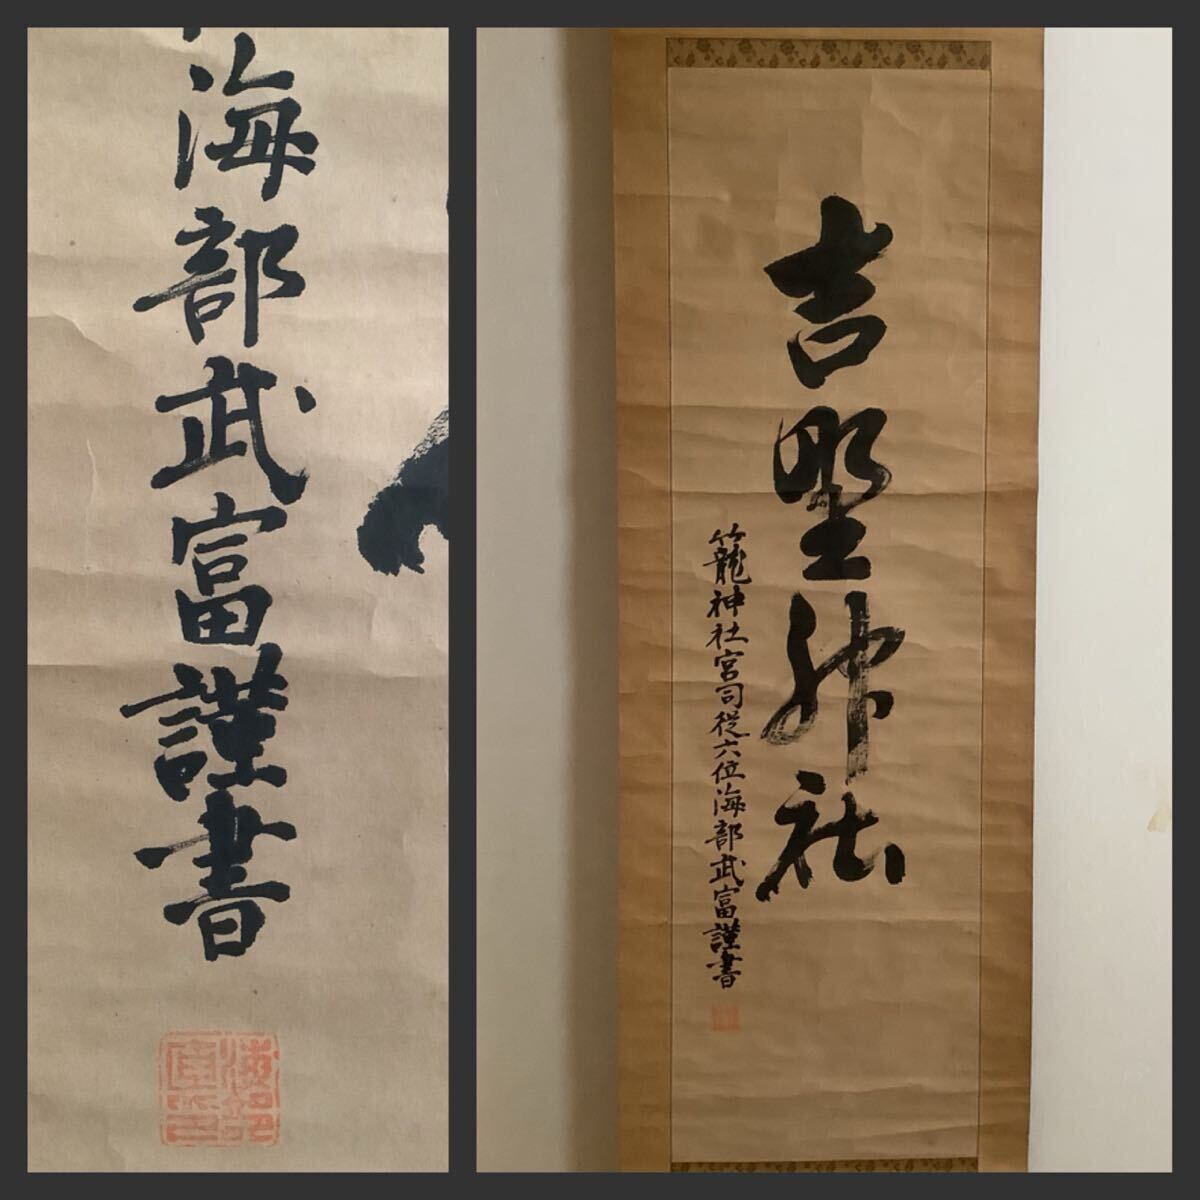 海部武富謹書
吉野神社
籠神社宮司従六位海部武富謹書